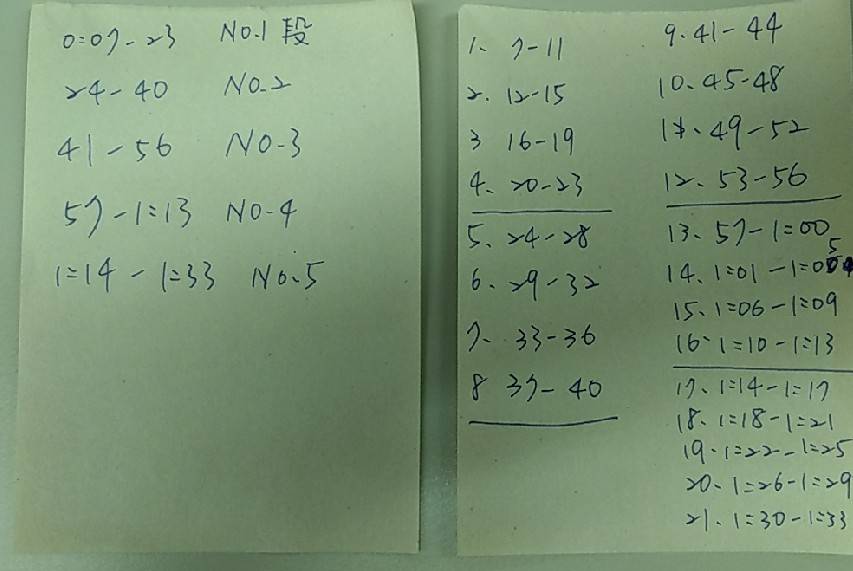 0:07-23 NO.1 段
24-40 NO.2
41-56 NO-3
57-1:13 NO-4
1:14-1:33 NO.5
1. 7-11
2. 12-15
3 16-19
4. 20-23
5. 24-28
6. 29-32
7. 33-36
8 37-40
9. 41-44
10. 45-48
11. 49-52
12. 53-56
13. 57-1:00
14. 1:01-1:05
15. 1:06-1:09
16. 1:10-1:13
17. 1:14-1:17
18. 1:18-1:21
19. 1:22-1:25
20. 1:26-1:29
21. 1:30-1:33